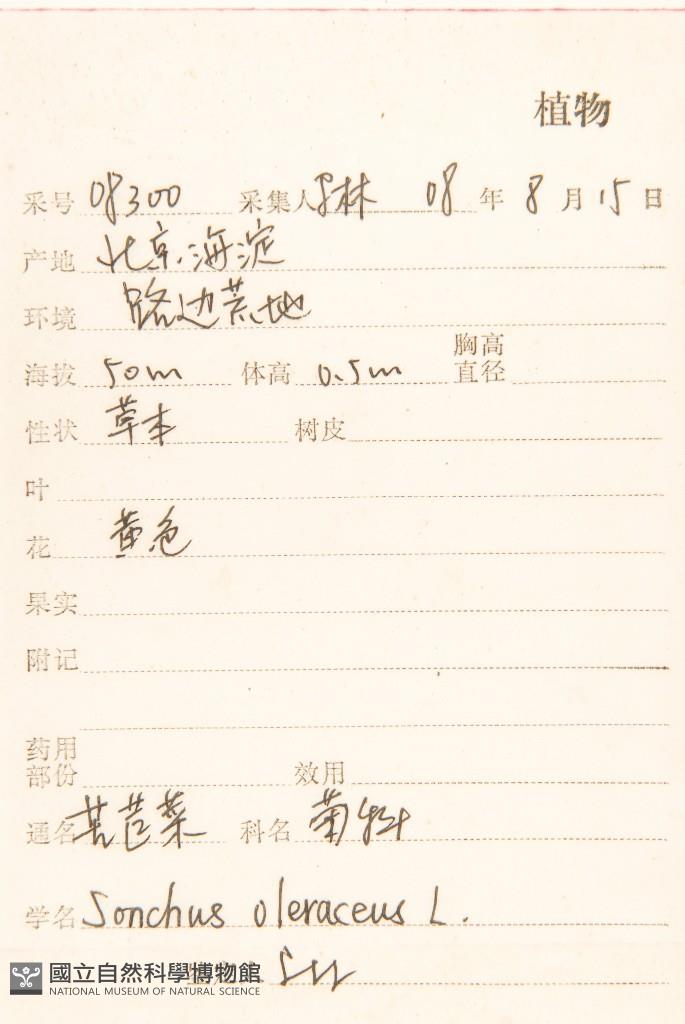 植物
采号 08300 采集人 林 08 年 8 月 15 日
产地 北京.海淀
环境 路边荒地
海拔 50m 体高 0.5m 胸高直径
性状 草本 树皮
叶
花 黄色
果实
附记
药用部份 效用
通名 苦苣菜 科名 菊科
学名 Sonchus oleraceus L.
國立自然科學博物館
NATIONAL MUSEUM OF NATURAL SCIENCE